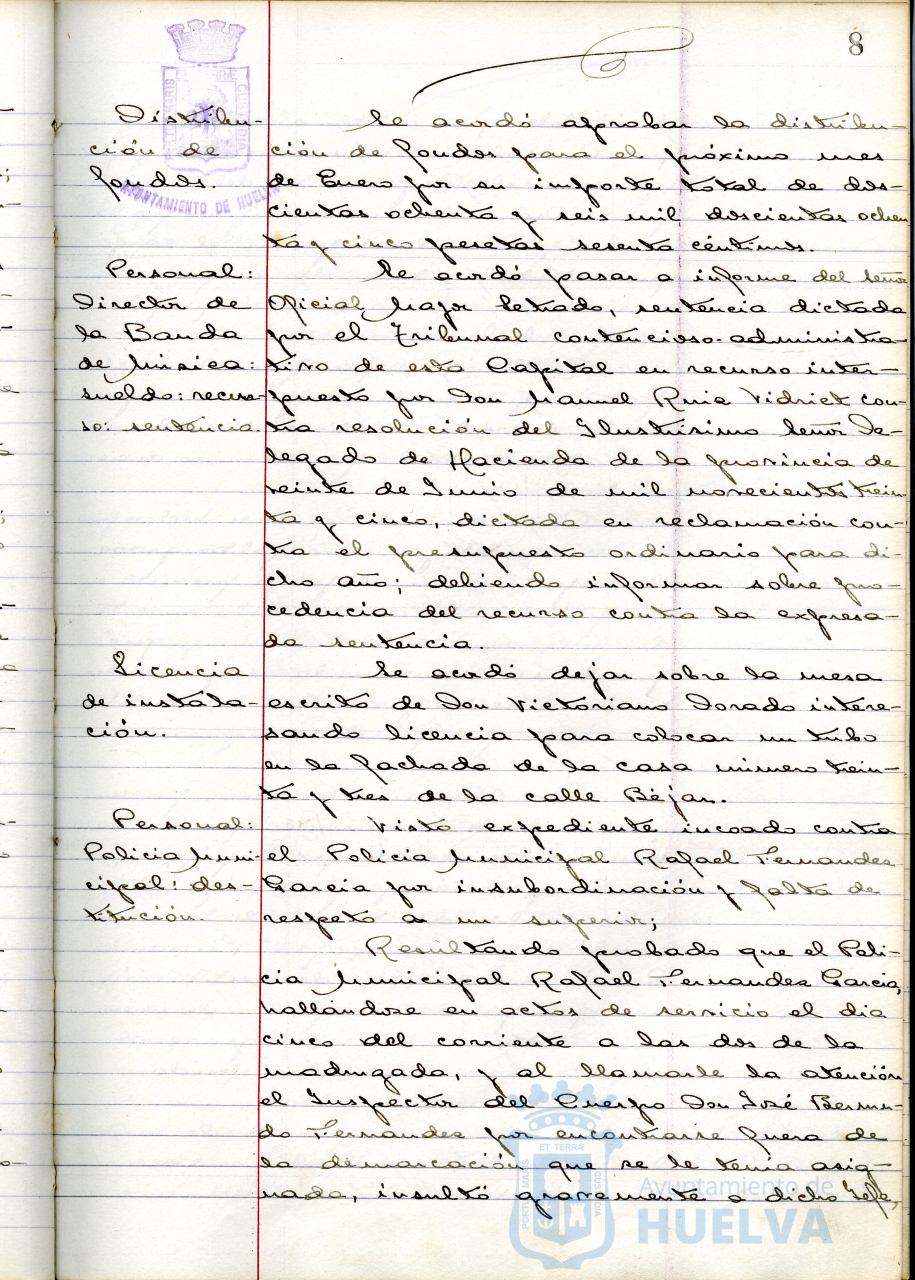 8
Distribu-
ción de
fondos.
Se acordó aprobar la distribu-
ción de fondos para el próximo mes
de Enero por su importe total de dos-
cientas ochenta y seis mil doscientas ochen
ta y cinco pesetas sesenta céntimos.
Personal:
Director de
la Banda
de Música:
sueldo: recur-
so: sentencia.
Se acordó pasar a informe del señor
Oficial Mayor Letrado, sentencia dictada
por el Tribunal contencioso-administra-
tivo de esta Capital en recurso inter-
puesto por Don Manuel Ruiz Vidriet con-
tra resolución del Ilustrísimo Señor De-
legado de Hacienda de la provincia de
veinte de Junio de mil novecientos trein-
ta y cinco, dictada en reclamación con-
tra el presupuesto ordinario para di-
cho año; debiendo informar sobre pro-
cedencia del recurso contra la expresa-
da sentencia.
Licencia
de instala-
ción.
Se acordó dejar sobre la mesa
escrito de Don Victoriano Dorado intere-
sando licencia para colocar un tubo
en la fachada de la casa número trein-
ta y tres de la calle Béjar.
Personal:
Policia Muni-
cipal: des-
titución.
Visto expediente incoado contra
el Policia Municipal Rafael Fernandez
Garcia por insubordinación y falta de
respeto a un superior;
Resultando probado que el Poli-
cia Municipal Rafael Fernandez Garcia,
hallándose en actos de servicio el dia
cinco del corriente a las dos de la
madrugada, y al llamarle la atención
el Inspector del Cuerpo Don José Bermu-
do Fernandez por encontrarse fuera de
la demarcación que se le tenía asig-
nada, insultó gravemente a dicho Jefe,
AYUNTAMIENTO DE HUELVA
PORTUS MARIS
ET TERRÆ
CUSTODIA
Ayuntamiento de
HUELVA